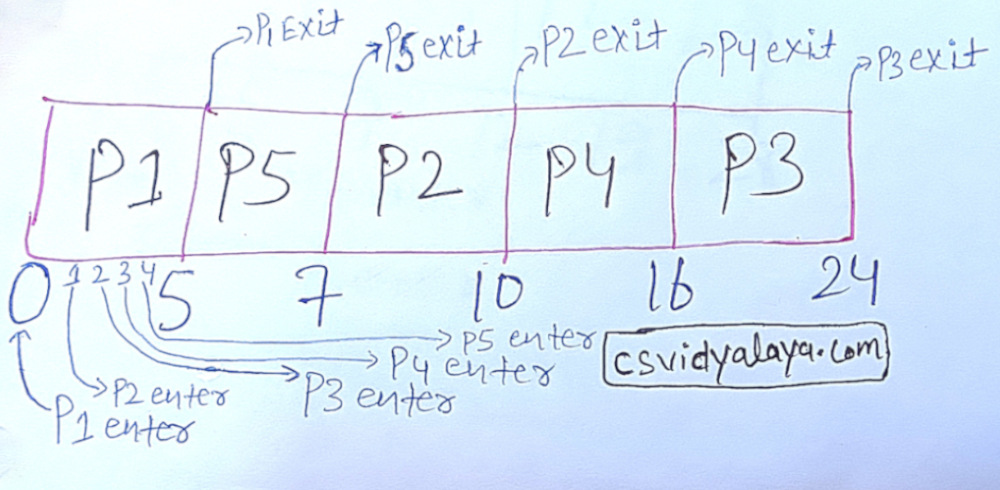 P1 Exit
P5 exit
P2 exit
P4 exit
P3 exit
P1 P5 P2 P4 P3
0 1 2 3 4 5 7 10 16 24
P5 enter
P4 enter
P3 enter
P2 enter
P1 enter
csvidyalaya.com